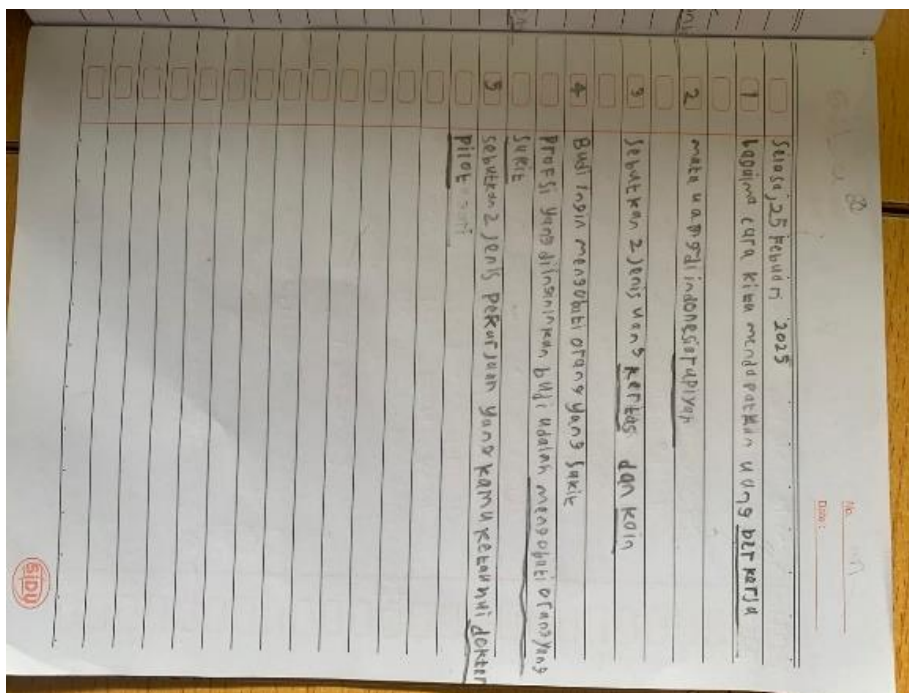 No.
Date:
Selasa, 25 Febuari 2025
1 bagaima cara kita mendapatkan uang berkerja
2 mata uang di indonesia rupiyah
3 Sebutkan 2 jenis uang kertas dan koin
4 Budi ingin mengobati orang yang sakit
Profsi yang diinginkan budi adalah mengobati orang yang
sakit
5 sebutkan 2 jenis pekerjaan yang kamu ketahui dokter
pilot
SIDU